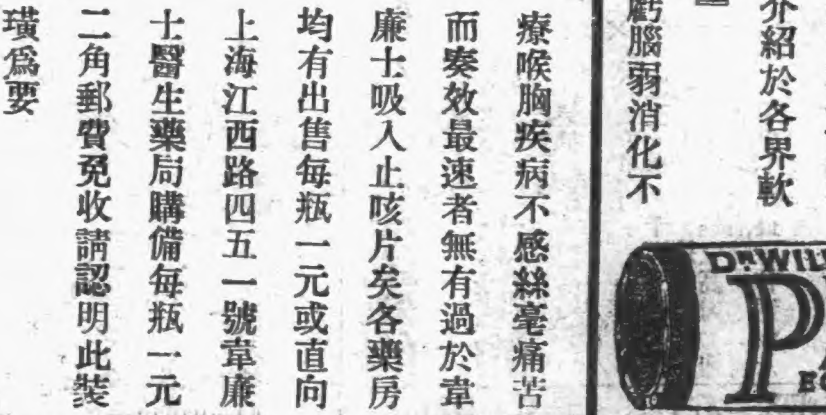 介紹於各界軟
虧腦弱消化不
DR WILL
P
療喉胸疾病不感絲毫痛苦
而奏效最速者無有過於韋
廉士吸入止咳片矣各藥房
均有出售每瓶一元或直向
上海江西路四五一號韋廉
士醫生藥局購備每瓶一元
二角郵費免收請認明此裝
璜爲要